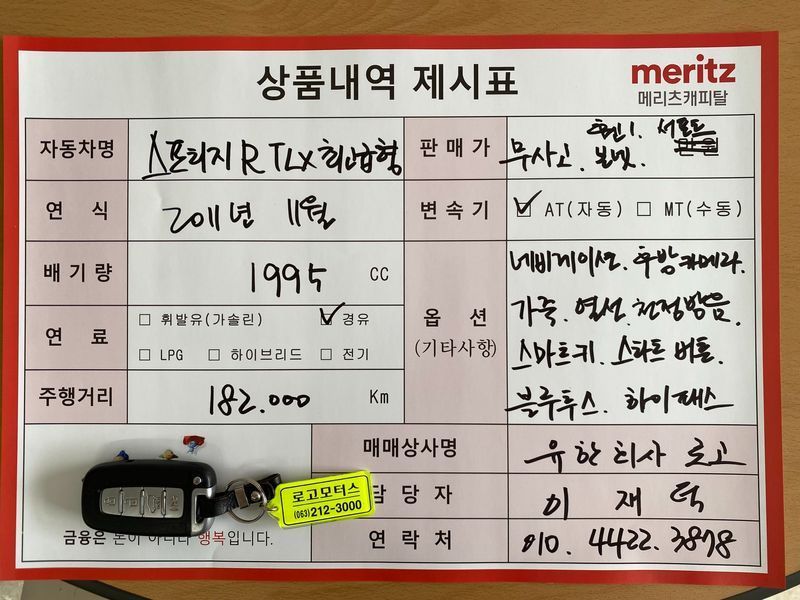 상품내역 제시표
meritz
메리츠캐피탈
자동차명 스포티지R TLX 최고급형
판매가 휀1. 서포트
무사고. 본넷. 만원
연 식 2011년 11월
변속기 ☑ AT(자동) □ MT(수동)
배기량 1995 CC
연 료 □ 휘발유(가솔린) ☑ 경유
□ LPG □ 하이브리드 □ 전기
주행거리 182.000 Km
옵 션
(기타사항)
네비게이션. 후방카메라.
가죽. 열선. 천정방음.
스마트키. 스타트버튼.
블루투스. 하이패스
매매상사명 유한회사 로고
담당자 이재덕
연락처 010. 4422. 3878
로고모터스
(063)212-3000
금융은 돈이 아니라 행복입니다.